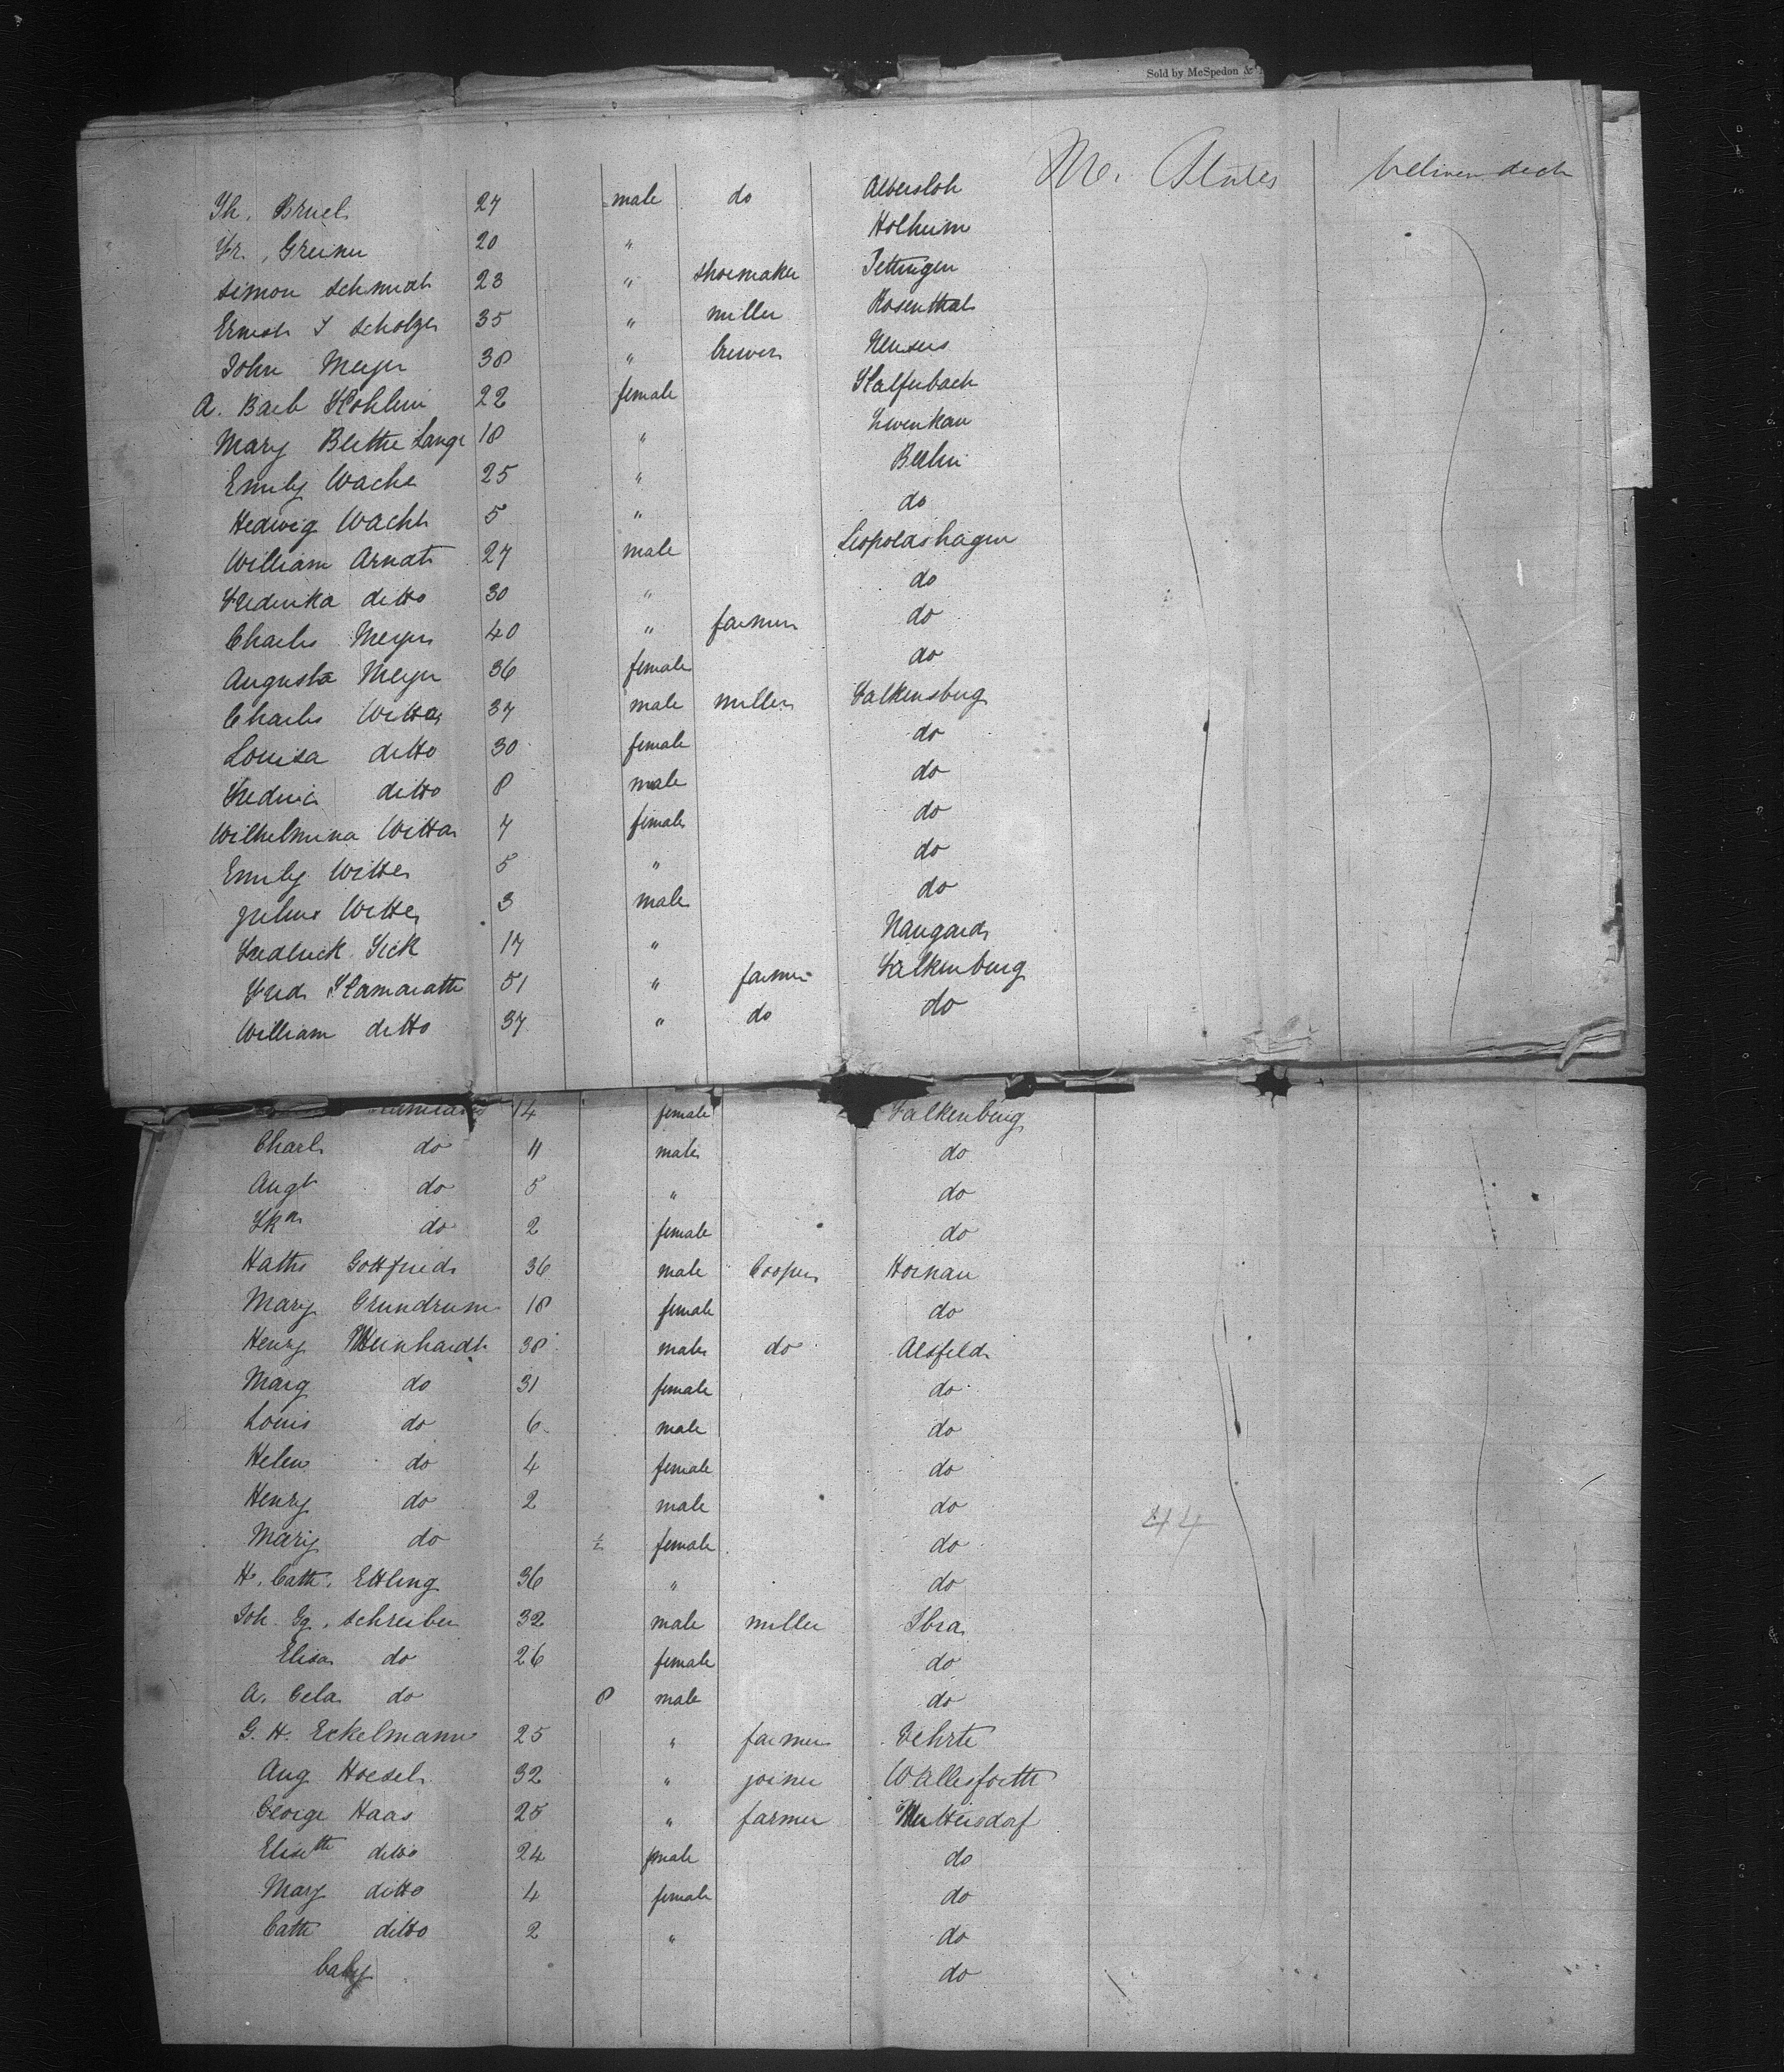 Sold by McSpedon &
Th. Bruel 27 male do Albersloh U. States between deck
Fr. Greiner 20 " Holheim
Simon Schmidt 23 " shoemaker Jettingen
Ernest F Scholze 35 " miller Rosenthal
John Meyer 38 " brewer Neuses
A. Barb Kohlein 22 female
Mary Bertha Lange 18 " Zwenkau
Emily Wachs 25 " Berlin
Hedwig Wachs 5 " do
William Arndt 27 male Leopoldshagen
Frederika ditto 30 " do
Charles Meyer 40 " farmer do
Augusta Meyer 36 female do
Charles Witte 37 male miller Falkensburg
Louisa ditto 30 female do
Fredric ditto 8 male do
Wilhelmina Witte 7 female do
Emily Witte 5 " do
Julius Witte 3 male do
Fredrick Sick 17 " Naugard
Fred Kamrath 51 " farmer Falkenburg
William ditto 37 " do do
14 female Falkenburg
Charls do 11 male do
Augt do 5 " do
Fka do 2 female do
Haths Gottfried 36 male Cooper Hornau
Mary Grundrum 18 female do
Henry Meinhardt 38 male do Alsfeld
Marg do 31 female do
Louis do 6 male do
Helen do 4 female do
Henry do 2 male do 44
Mary do ½ female do
H. Cath. Ettling 36 " do
Joh. Gg. Schreiber 32 male miller Ibra
Elisa do 26 female do
A. Cela do 8 male do
G. H. Eckelmann 25 " farmer Vehrte
Aug Hoesel 32 " joiner Wallesforth
George Haas 25 " farmer Muttersdorf
Eliseth ditto 24 fmale do
Mary ditto 4 female do
Cath ditto 2 " do
baby do